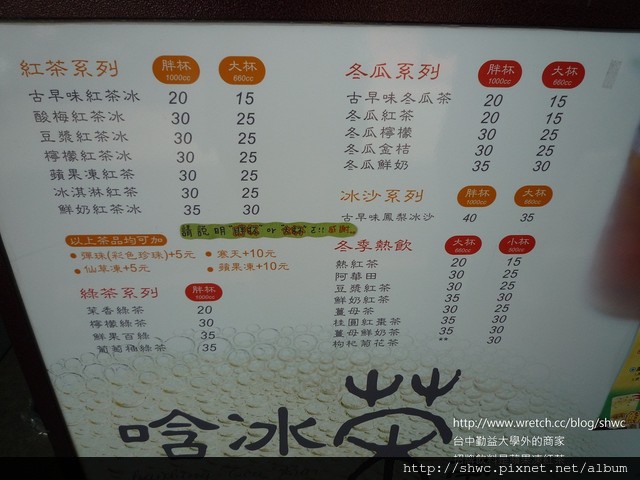 紅茶系列 胖杯 1000cc 大杯 660cc
古早味紅茶冰 20 15
酸梅紅茶冰 30 25
豆漿紅茶冰 30 25
檸檬紅茶冰 30 25
蘋果凍紅茶 30 25
冰淇淋紅茶 30 25
鮮奶紅茶冰 35 30
請說明"胖杯"or"大杯"
以上茶品均可加
彈珠(彩色珍珠)+5元
寒天+10元
仙草凍+5元
蘋果凍+10元
綠茶系列 胖杯 1000cc
茉香綠茶 20
檸檬綠茶 30
鮮果百綠 35
葡萄柚綠茶 35
冬瓜系列 胖杯 1000cc 大杯 660cc
古早味冬瓜茶 20 15
冬瓜紅茶 20 15
冬瓜檸檬 30 25
冬瓜金桔 30 25
冬瓜鮮奶 35 30
冰沙系列 胖杯 1000cc 大杯 660cc
古早味鳳梨冰沙 40 35
冬季熱飲 大杯 660cc 小杯 500cc
熱紅茶 20 15
阿華田 30 25
豆漿紅茶 30 25
鮮奶紅茶 35 30
薑母茶 30 25
桂圓紅棗茶 35 30
薑母鮮奶茶 35 30
枸杞菊花茶 ** 30
哈冰茶
http://www.wretch.cc/blog/shwc
台中勤益大學外的商家
http://shwc.pixnet.net/album